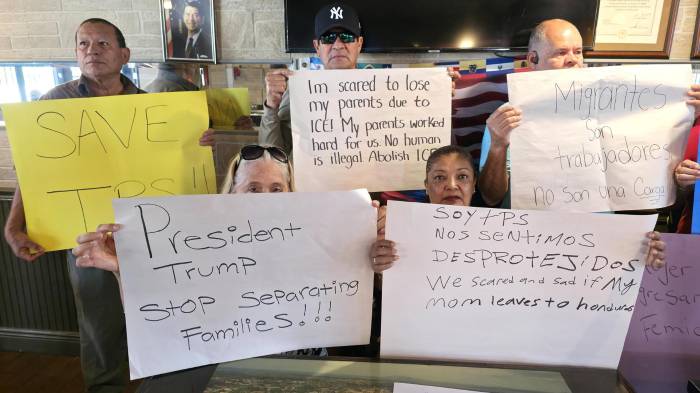 SAVE
TPS!!
NY
Im scared to lose
my parents due to
ICE! My parents worked
hard for us. No human
is illegal Abolish ICE
Migrantes
son
trabajadores
no son una Carga
President
Trump
Stop Separating
Families!!!
SOY TPS
NOS SENTIMOS
DESPROTEJIDOS
We scared and sad if My
mom leaves to honduras